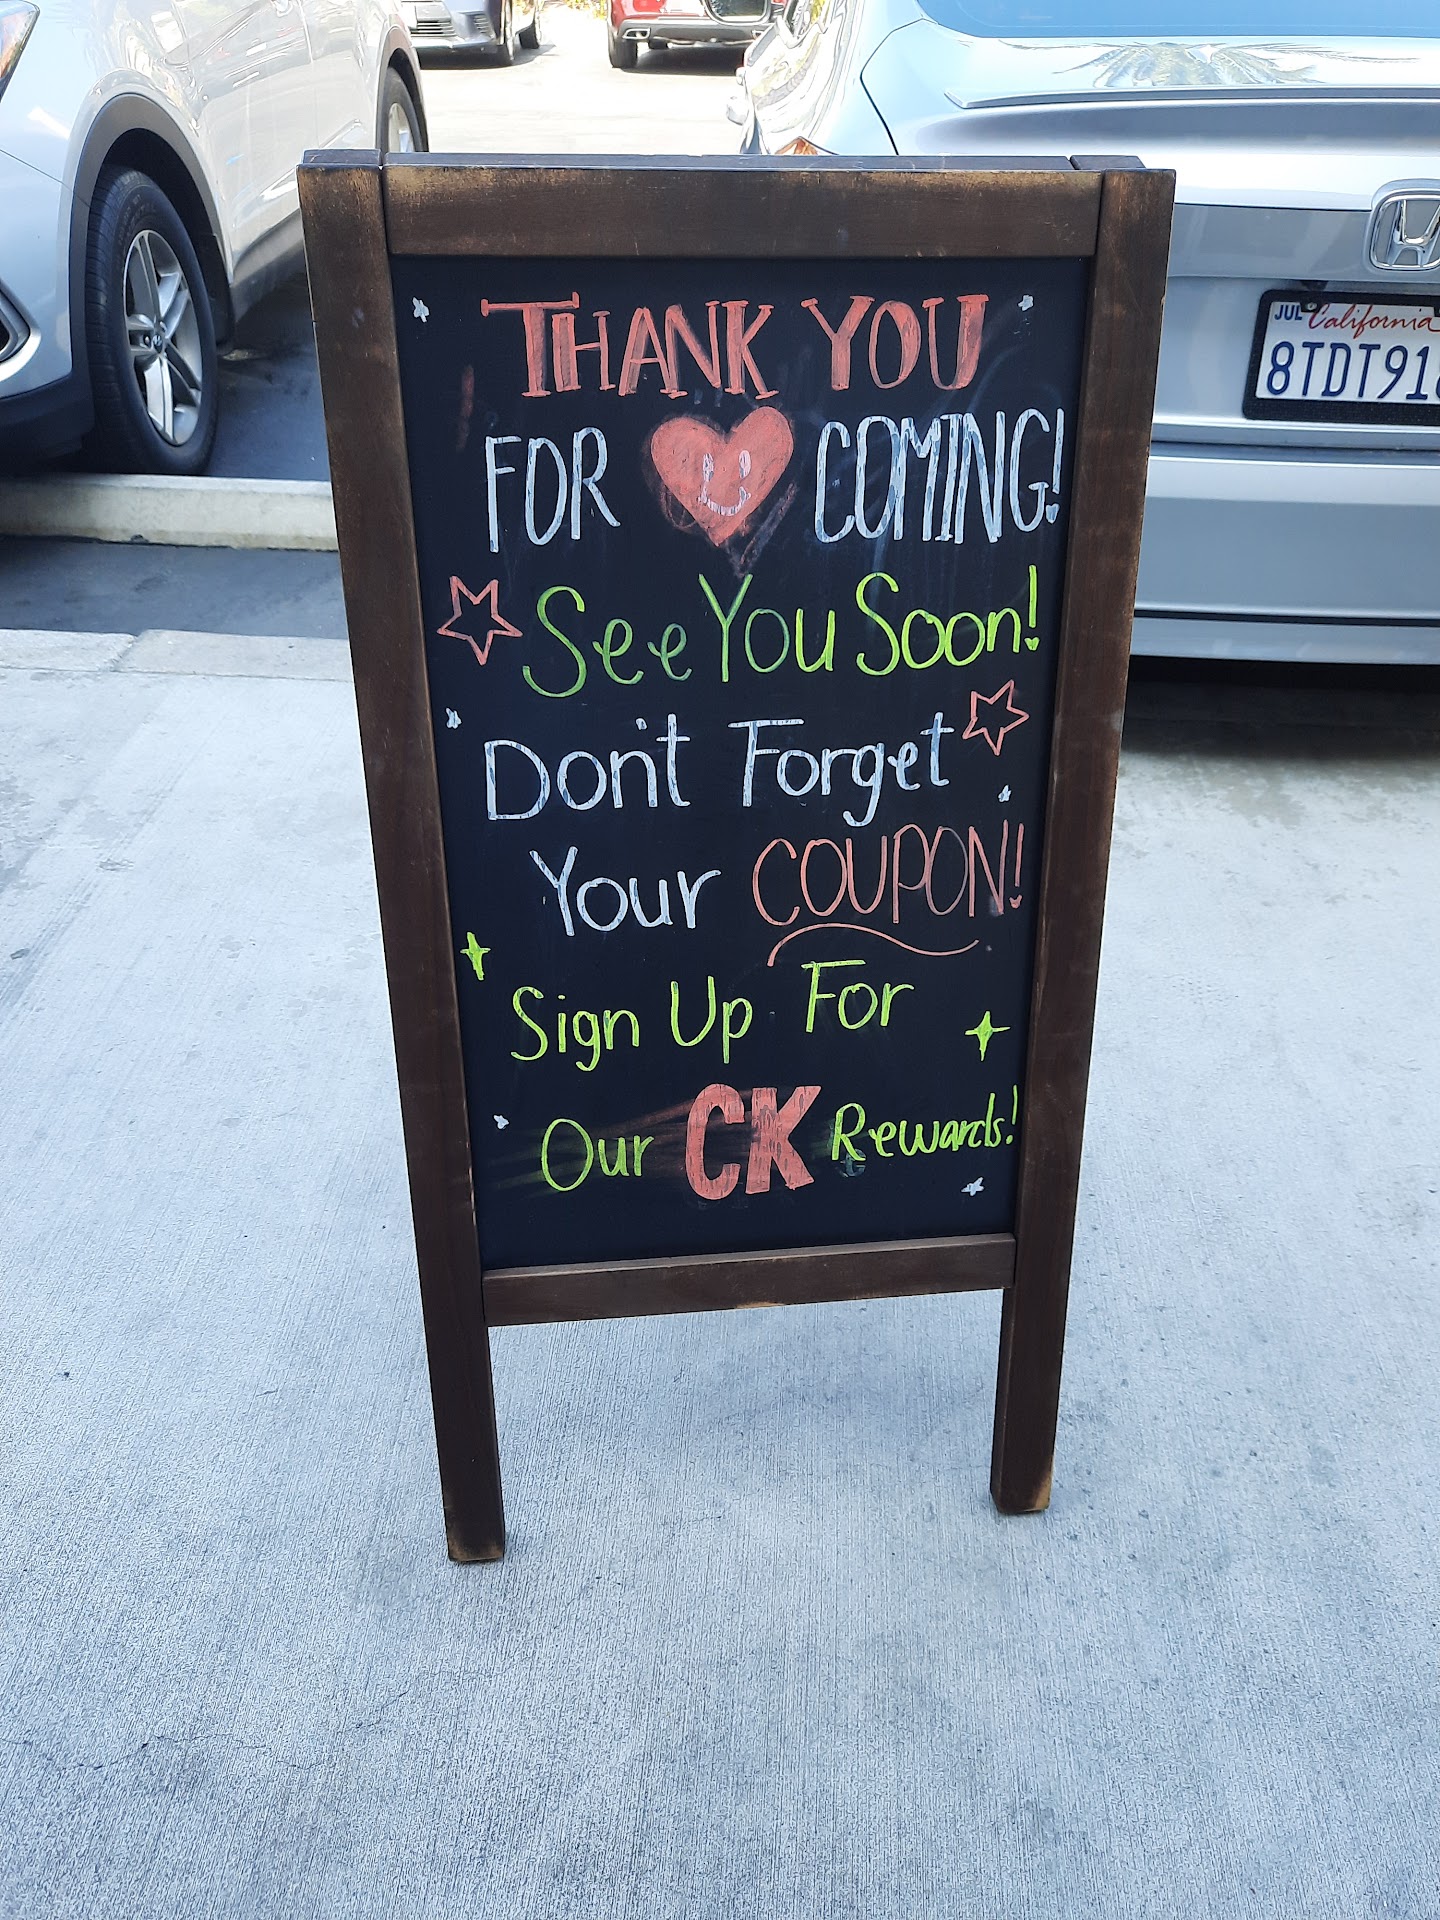 THANK YOU
FOR COMING!
See You Soon!
Don't Forget
Your COUPON!
Sign Up For
Our CK Rewards!
JUL California